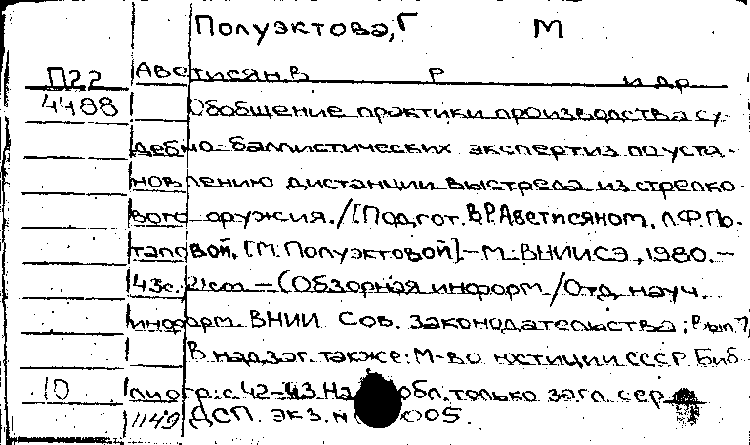 Полуэктова, Г М
П22 Аветисян, В Р и др.
4488 Обобщение практики производства су-
дебно-баллистических экспертиз по уста-
новлению дистанции выстрела из стрелко-
вого оружия. / [Подгот. В.Р. Аветисяном, Л.Ф. По-
таповой, [М. Полуэктовой]. – М.: ВНИИСЭ, 1980. –
43с. 21см – (Обзорная информ. / Отд. науч.
информ. ВНИИ Сов. законодательства; Вып. 7)
В надзаг. также: М-во юстиции СССР. Биб-
10 лиогр: с. 42-43. На обл. только загл. сер.
1149 ДСП. экз. N 005.